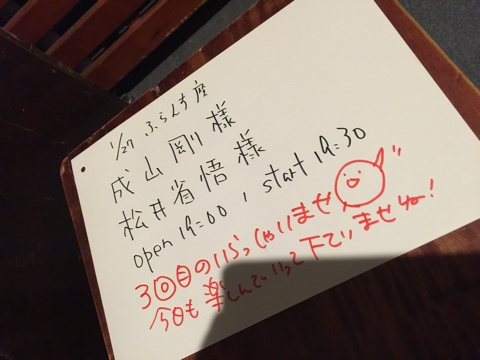 1/27 ふらんす座
成山剛様
松井省悟様
open 19:00, start 19:30
3回目のいらっしゃいませ
今日も楽しんでいって下さいませね!